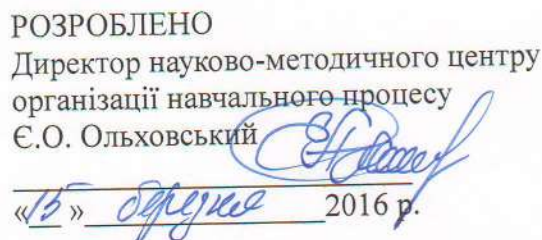 РОЗРОБЛЕНО
Директор науково-методичного центру
організації навчального процесу
Є.О. Ольховський
«15» березня 2016 р.